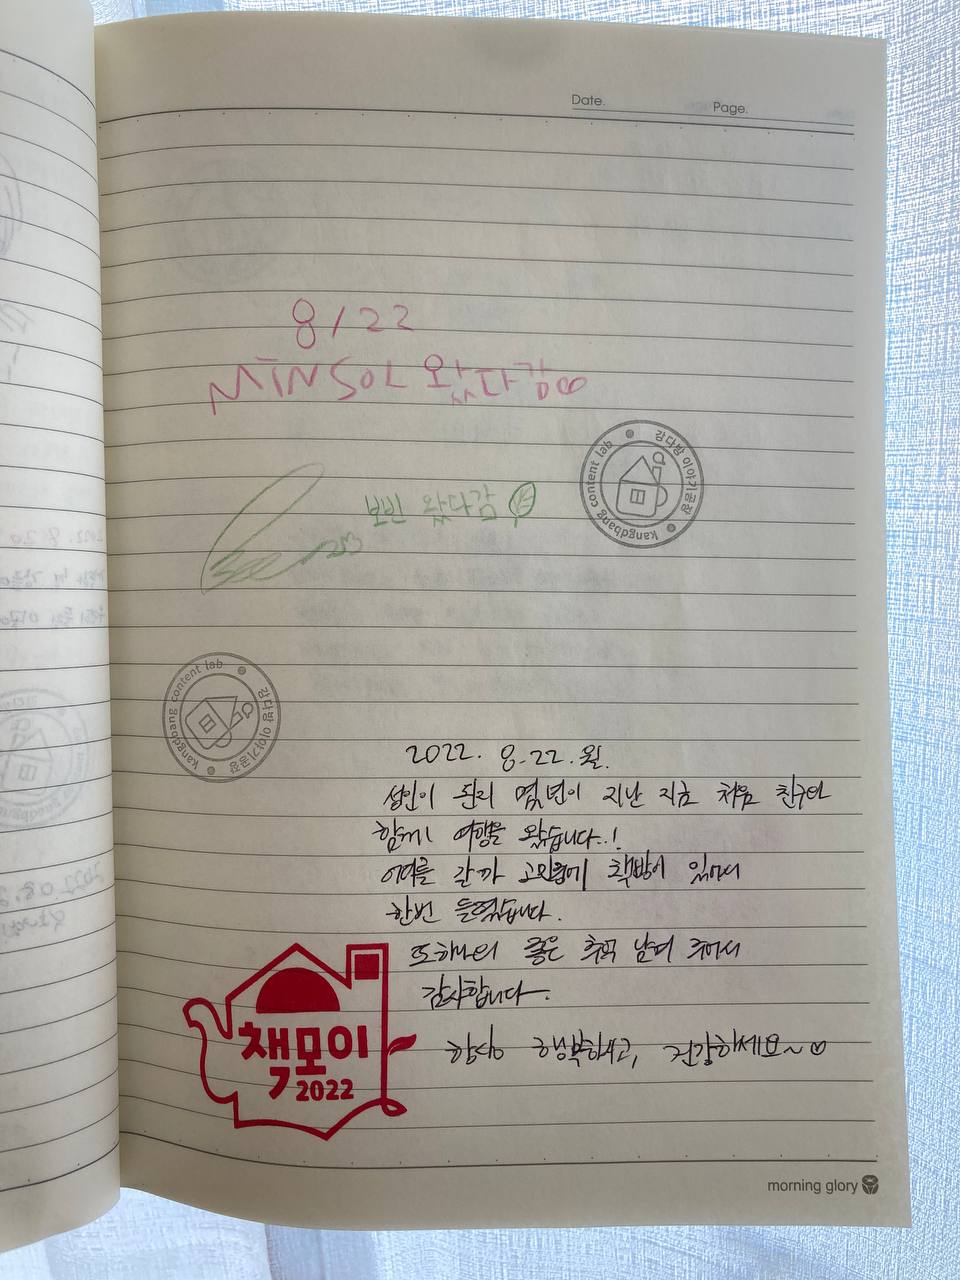 Date.
Page.
8/22
MINSOL 왔다감
보빈 왔다감
kangdbang content lab 강다방 이야기공장
kangdbang content lab 강다방 이야기공장
2022. 8.22.월.
성인이 된지 몇년이 지난 지금 처음 친구와
함께 여행을 왔습니다..!
어디를 갈까 고민중에 책방이 있어서
한번 들렀습니다.
또 하나의 좋은 추억 남겨 주어서
감사합니다.
항상 행복하시고, 건강하세요~♡
책모이
2022
morning glory